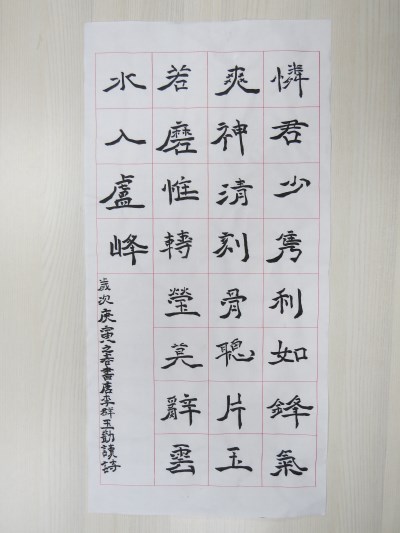 憐君少雋利如鋒氣
爽神清刻骨聰片玉
若磨惟轉瑩莫辭雲
水入盧峰
歲次庚寅之春書唐李群玉勸讀詩